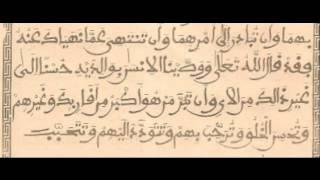 بهما وان تبادر الى امرهما وان تنتهي عما نهياك عنه
فقد قال الله تعلى ووصينا الانسن بوالديه حسنا الى
غير ذلك من الاي وان تبر من هو اكبر من اقاربك وغيرهم
وتحسن الخلق وترحب بهم وتتودد اليهم وتتحبب